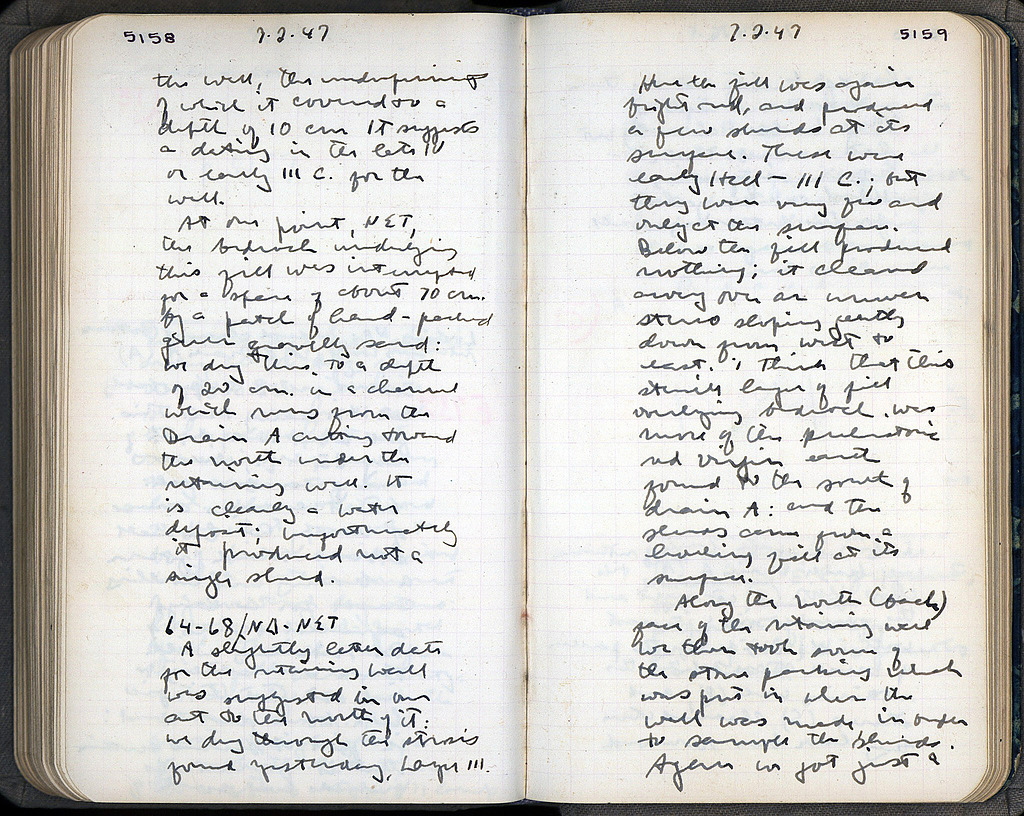 5158
7.2.47
the wall, the underpinning
of which it covered to a
depth of 10 cm. It suggests
a dating in the late IV
or early III C. for the
wall.
At one point, NET,
the bedrock underlying
this fill was interrupted
for a space of about 70 cm.
by a patch of hard-packed
green gravelly sand:
we dug this to a depth
of 20 cm. in a channel
which runs from the
Drain A cutting toward
the north under the
retaining wall. It
is clearly a water
deposit; unfortunately
it produced not a
single sherd.
64-68/NΔ-NET
A slightly later date
for the retaining wall
was suggested in our
cut to the north of it:
we dug through the strosis
found yesterday, Layer III.
7.2.47
5159
Here the fill was again
bright red, and produced
a few sherds at its
surface. These were
early Hell - III C.; but
they were very few and
only at the surface.
Below the fill produced
nothing; it cleaned
away over an uneven
stereo sloping gently
down from west to
east. I think that this
sterile layer of fill
overlying bedrock was
more of the prehistoric
red virgin earth
found to the south of
drain A: and the
sherds came from a
levelling fill at its
surface.
Along the north (back)
face of the retaining wall
we then took some of
the stone packing which
was put in when the
wall was made in order
to sample the sherds.
Again we got just a